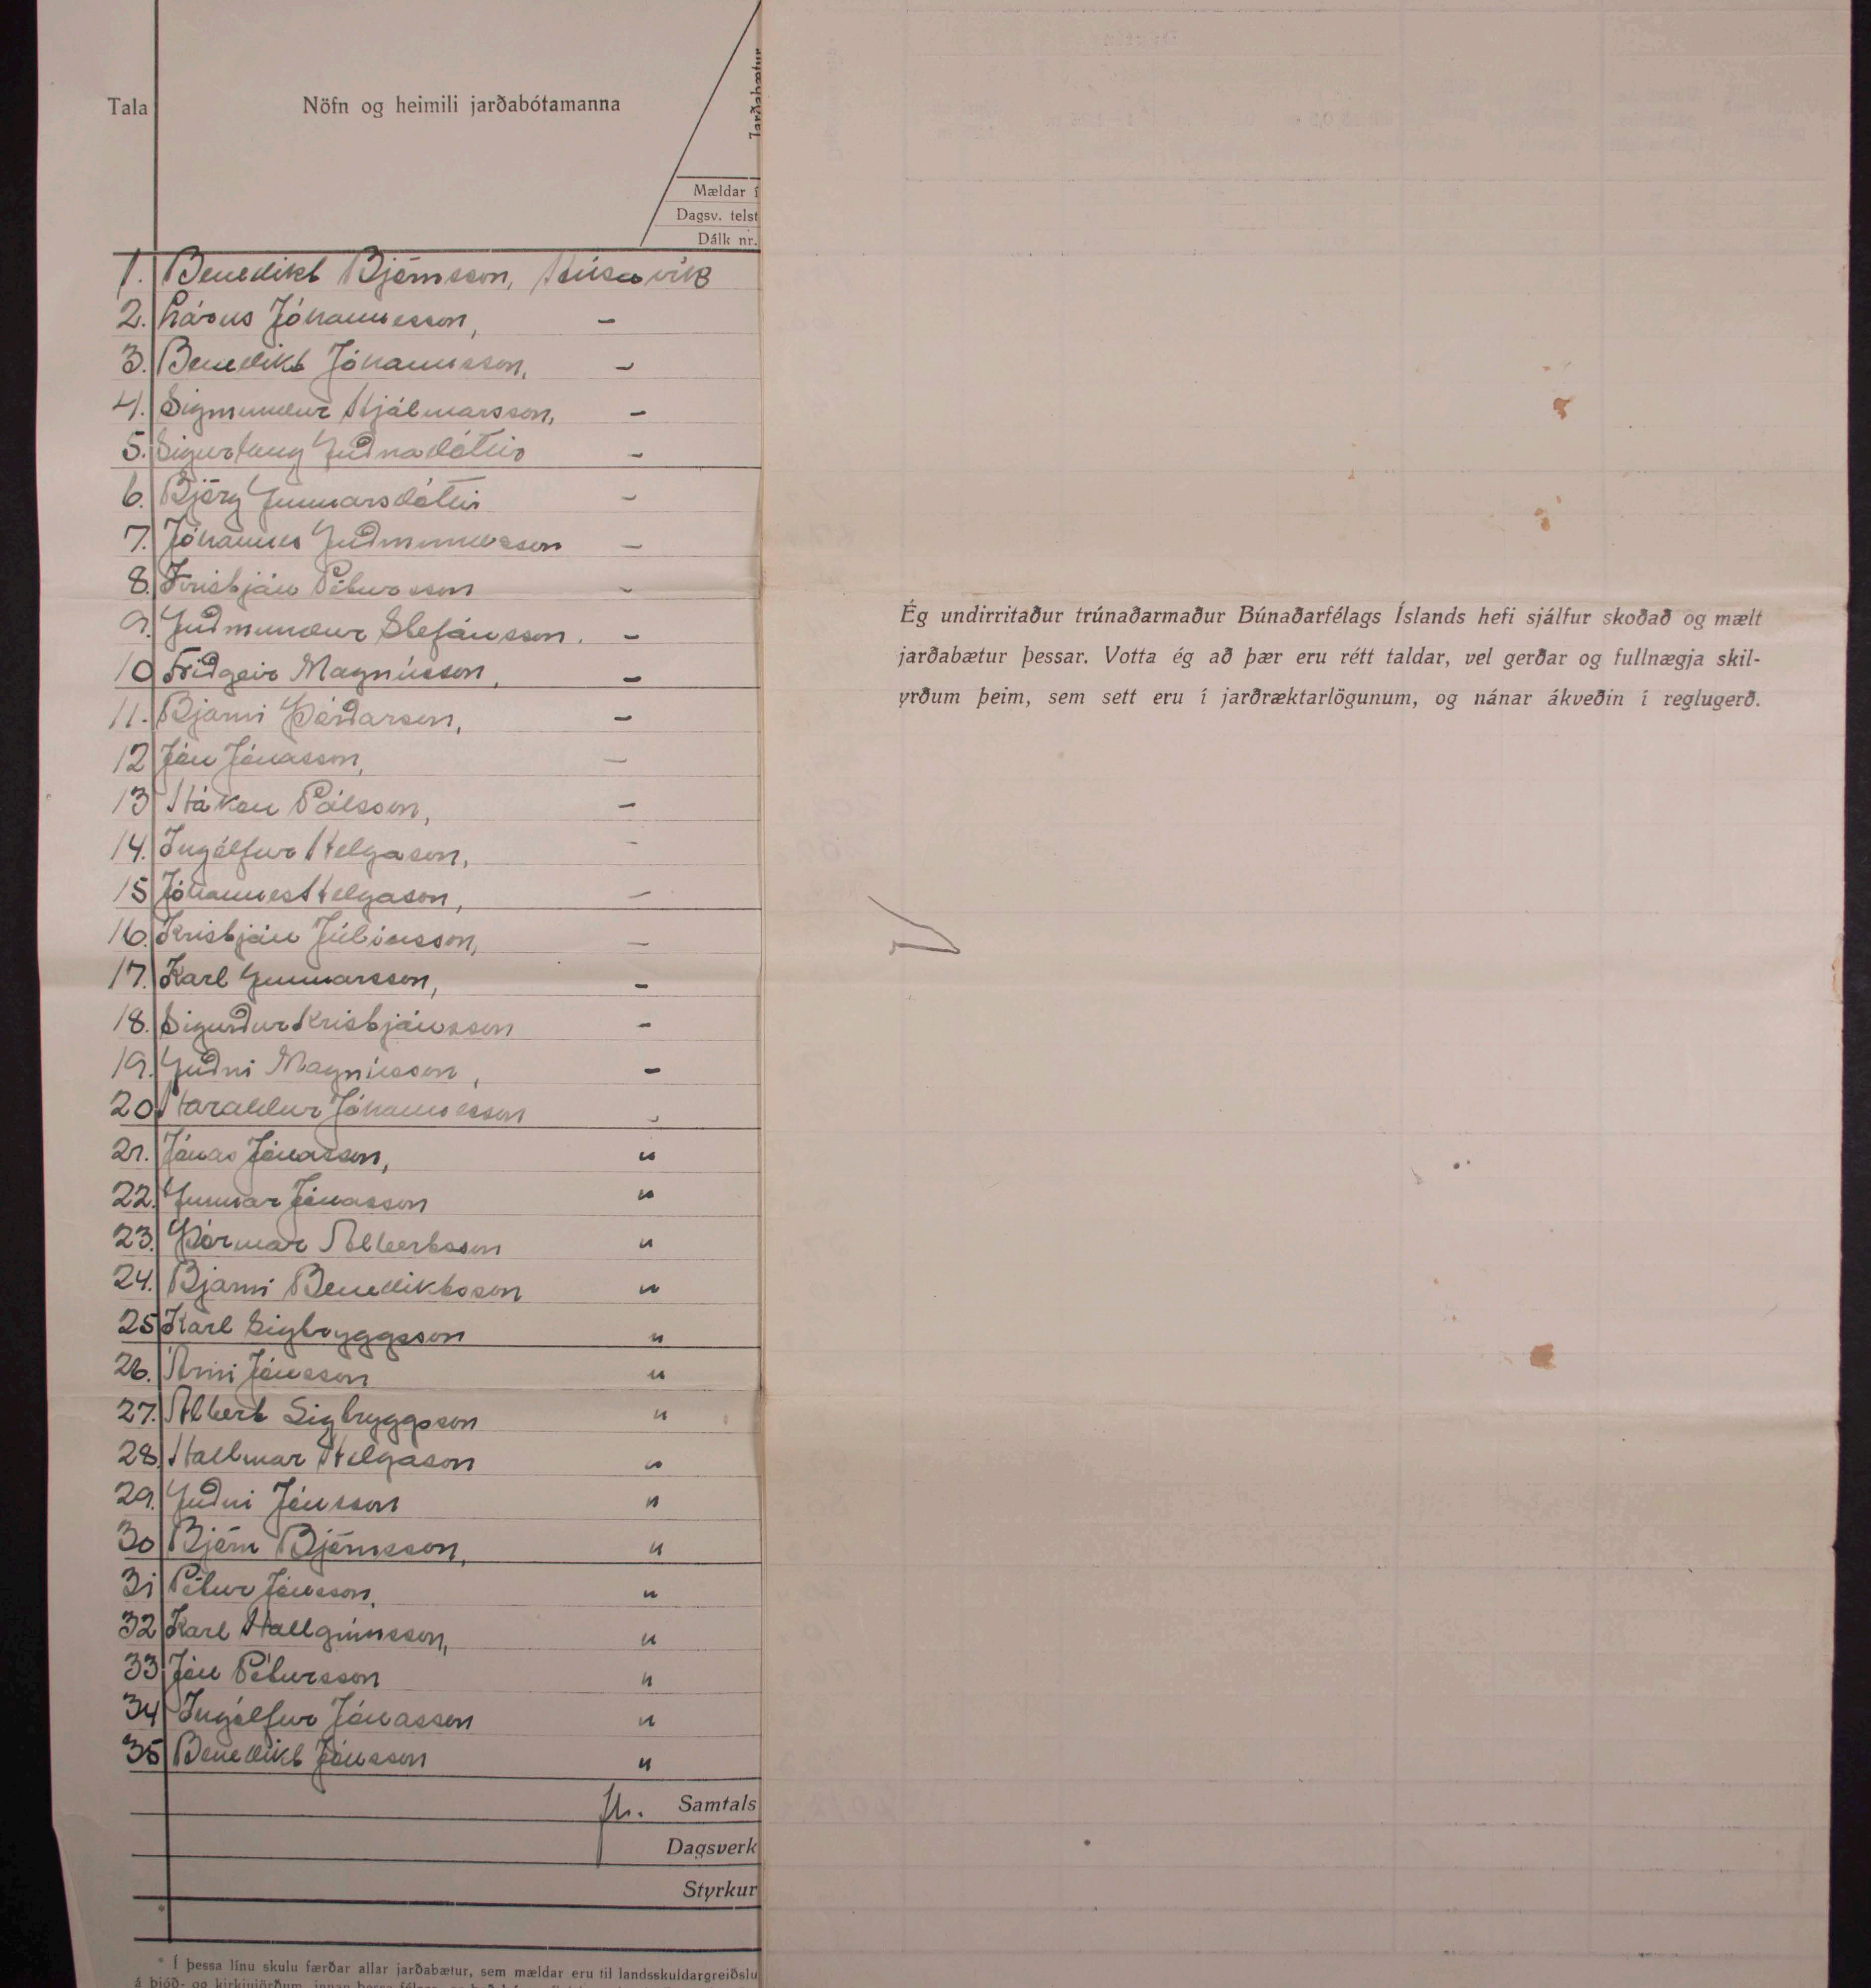 Tala
Nöfn og heimili jarðabótamanna
Jarðabætur
Mældar í
Dagsv. telst
Dálk nr.
1. Benedikt Björnsson, Húsavík
2. Lárus Jóhannesson, –
3. Benedikt Jóhannsson, –
4. Sigmundur Hjálmarsson, –
5. Sigurlaug Guðnadóttir –
6. Björg Gunnarsdóttir –
7. Jóhannes Guðmundsson –
8. Kristján Pétursson –
9. Guðmundur Stefánsson. –
10 Friðgeir Magnússon, –
11. Bjarni Þórðarson, –
12 Jón Jónasson, –
13 Hákon Pálsson, –
14. Ingólfur Helgason, –
15 Jóhannes Helgason, –
16. Kristján Júlíusson, –
17. Karl Gunnarsson, –
18. Sigurður Kristjánsson –
19. Guðni Magnússon, –
20 Haraldur Jóhannesson –
21. Jónas Jónasson, "
22. Gunnar Jónasson "
23. Þormar Albertsson "
24. Bjarni Benediktsson "
25 Karl Sigtryggsson "
26. Árni Jónsson "
27. Albert Sigtryggsson "
28. Hallmar Helgason "
29. Guðni Jónsson "
30 Björn Björnsson, "
31 Pétur Jónsson, "
32 Karl Hallgrímsson, "
33 Jón Pétursson "
34 Ingólfur Jónasson "
35 Benedikt Jónsson "
Samtals
Dagsverk
Styrkur
* Í þessa línu skulu færðar allar jarðabætur, sem mældar eru til landsskuldargreiðslu
á þjóð- og kirkjujörðum, innan þessa
Ég undirritaður trúnaðarmaður Búnaðarfélags Íslands hefi sjálfur skoðað og mælt
jarðabætur þessar. Votta ég að þær eru rétt taldar, vel gerðar og fullnægja skil-
yrðum þeim, sem sett eru í jarðræktarlögunum, og nánar ákveðin í reglugerð.